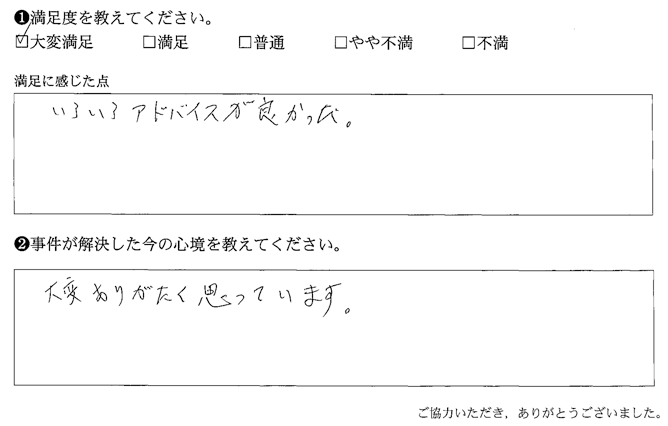 ❶満足度を教えてください。
☑大変満足 □満足 □普通 □やや不満 □不満
満足に感じた点
いろいろアドバイスが良かった。
❷事件が解決した今の心境を教えてください。
大変ありがたく思っています。
ご協力いただき，ありがとうございました。